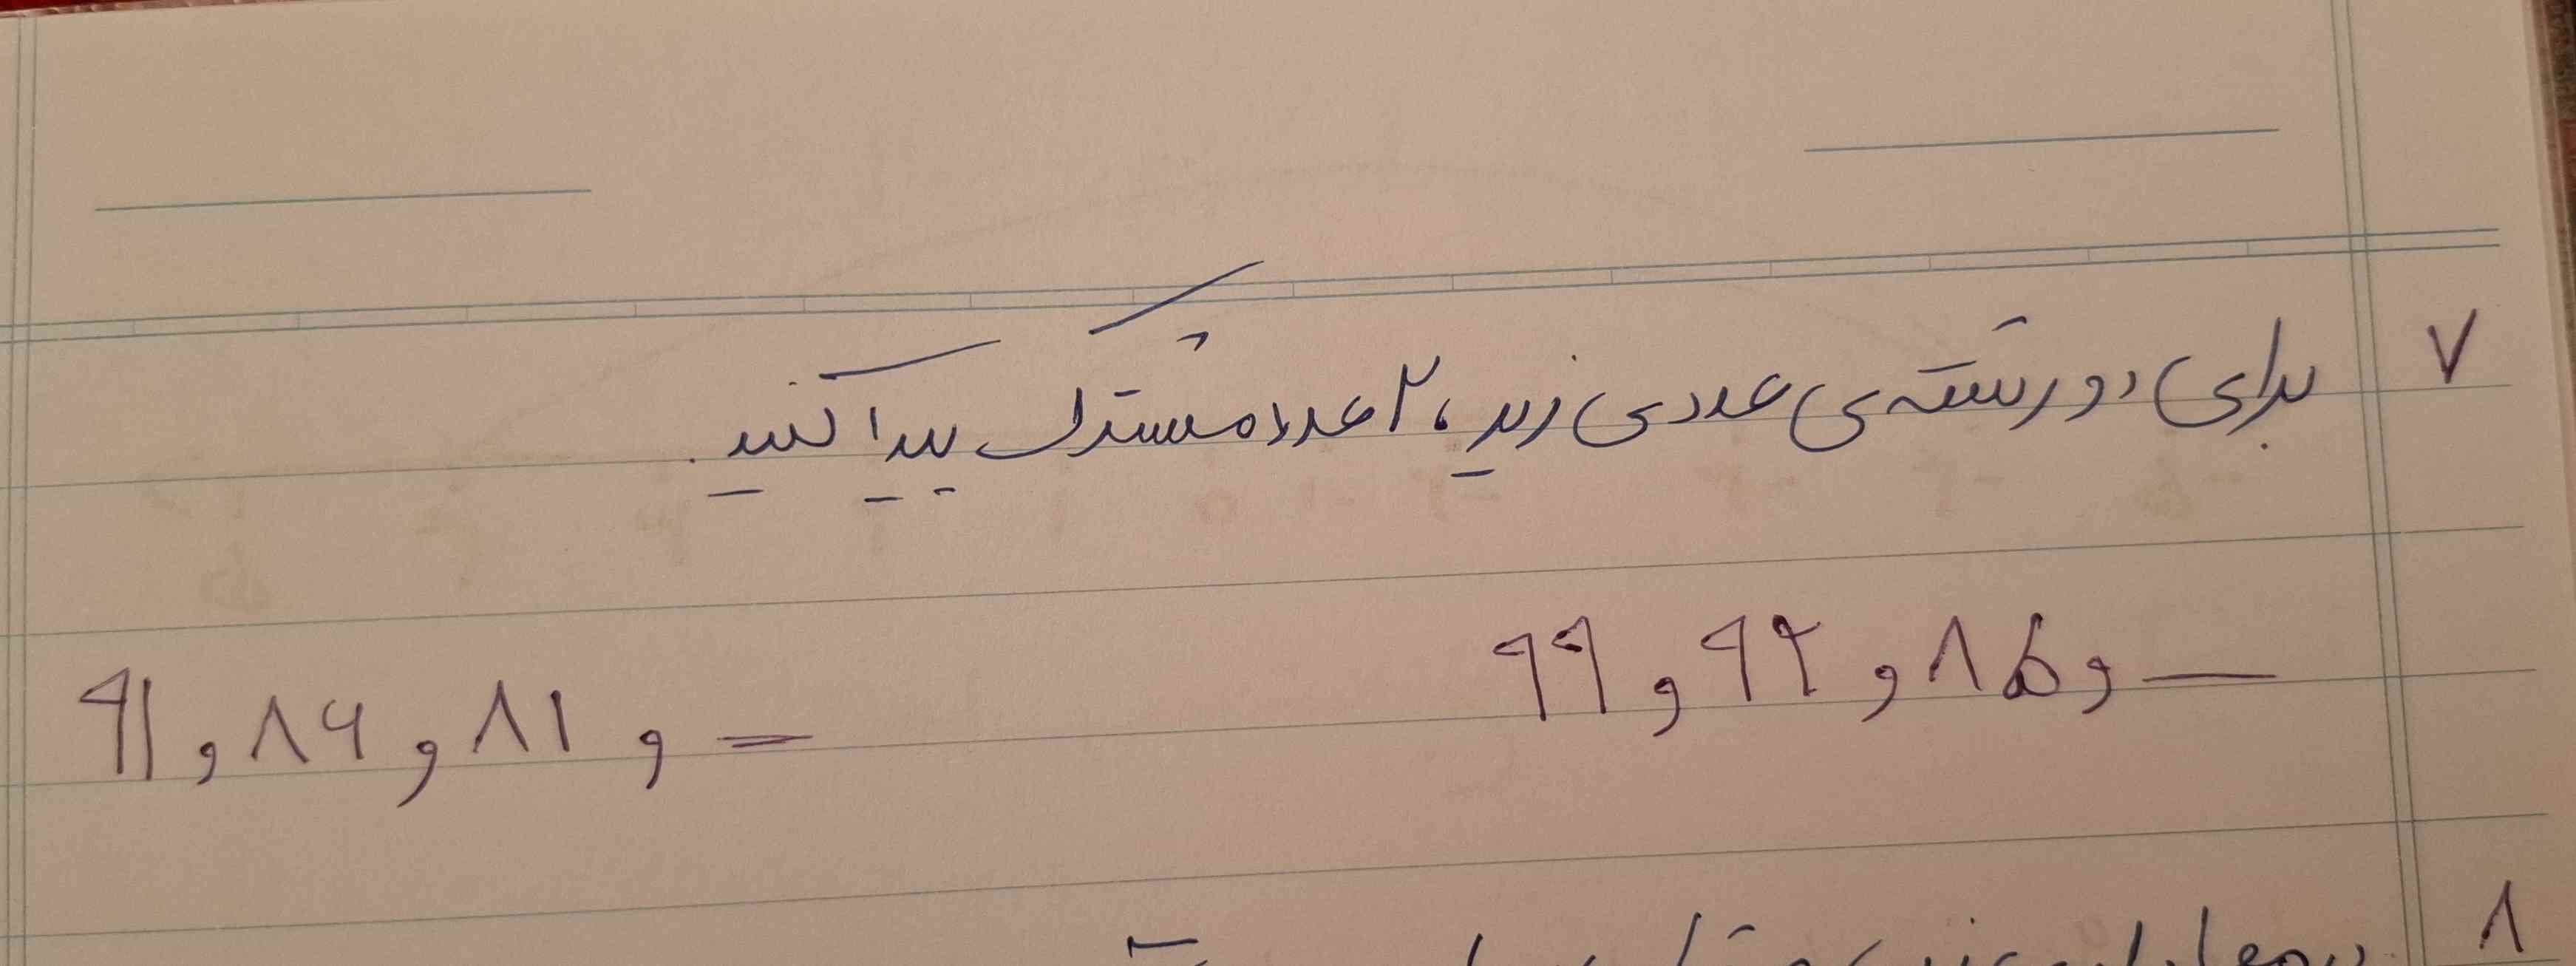 ۷ برای دو رشته‌ی عددی زیر، ۲ عدد مشترک پیدا کنید.
۹۹ , ۹۲ , ۸۵ , —
۹۱ , ۸۶ , ۸۱ , —
۸